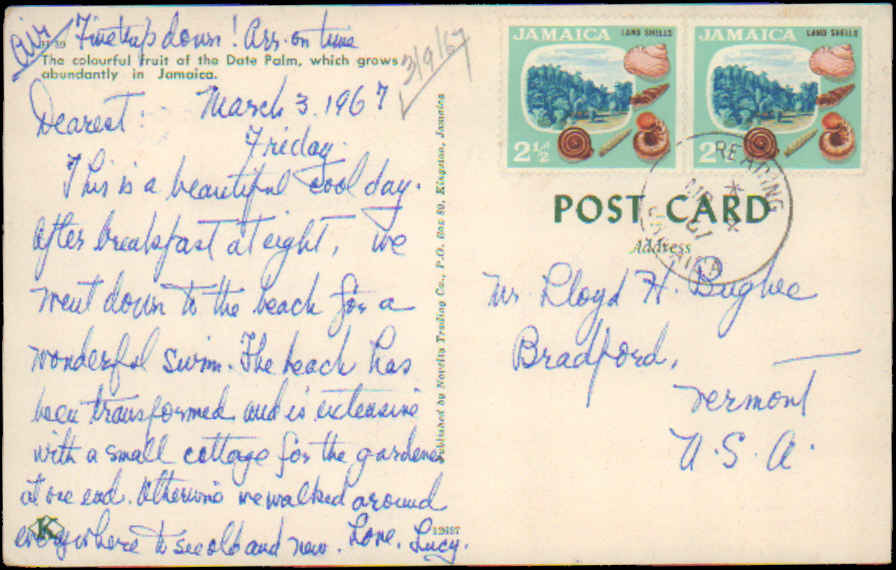 Air Fine trip down! Arr. on time
The colourful fruit of the Date Palm, which grows
abundantly in Jamaica.
3/9/67
Dearest: March 3, 1967
Friday.
This is a beautiful cool day.
After breakfast at eight, we
went down to the beach for a
wonderful swim. The beach has
been transformed and is extensive
with a small cottage for the gardener
at one end. Otherwise we walked around
everywhere to see old and new. Love, Lucy.
K
12697
Published by Novelty Trading Co., P.O. Box 80, Kingston, Jamaica
JAMAICA LAND SHELLS
2½d
JAMAICA LAND SHELLS
2
READING
JAMAICA
67
POST CARD
Address
Mr. Lloyd H. Bugbee
Bradford,
Vermont
U.S.A.